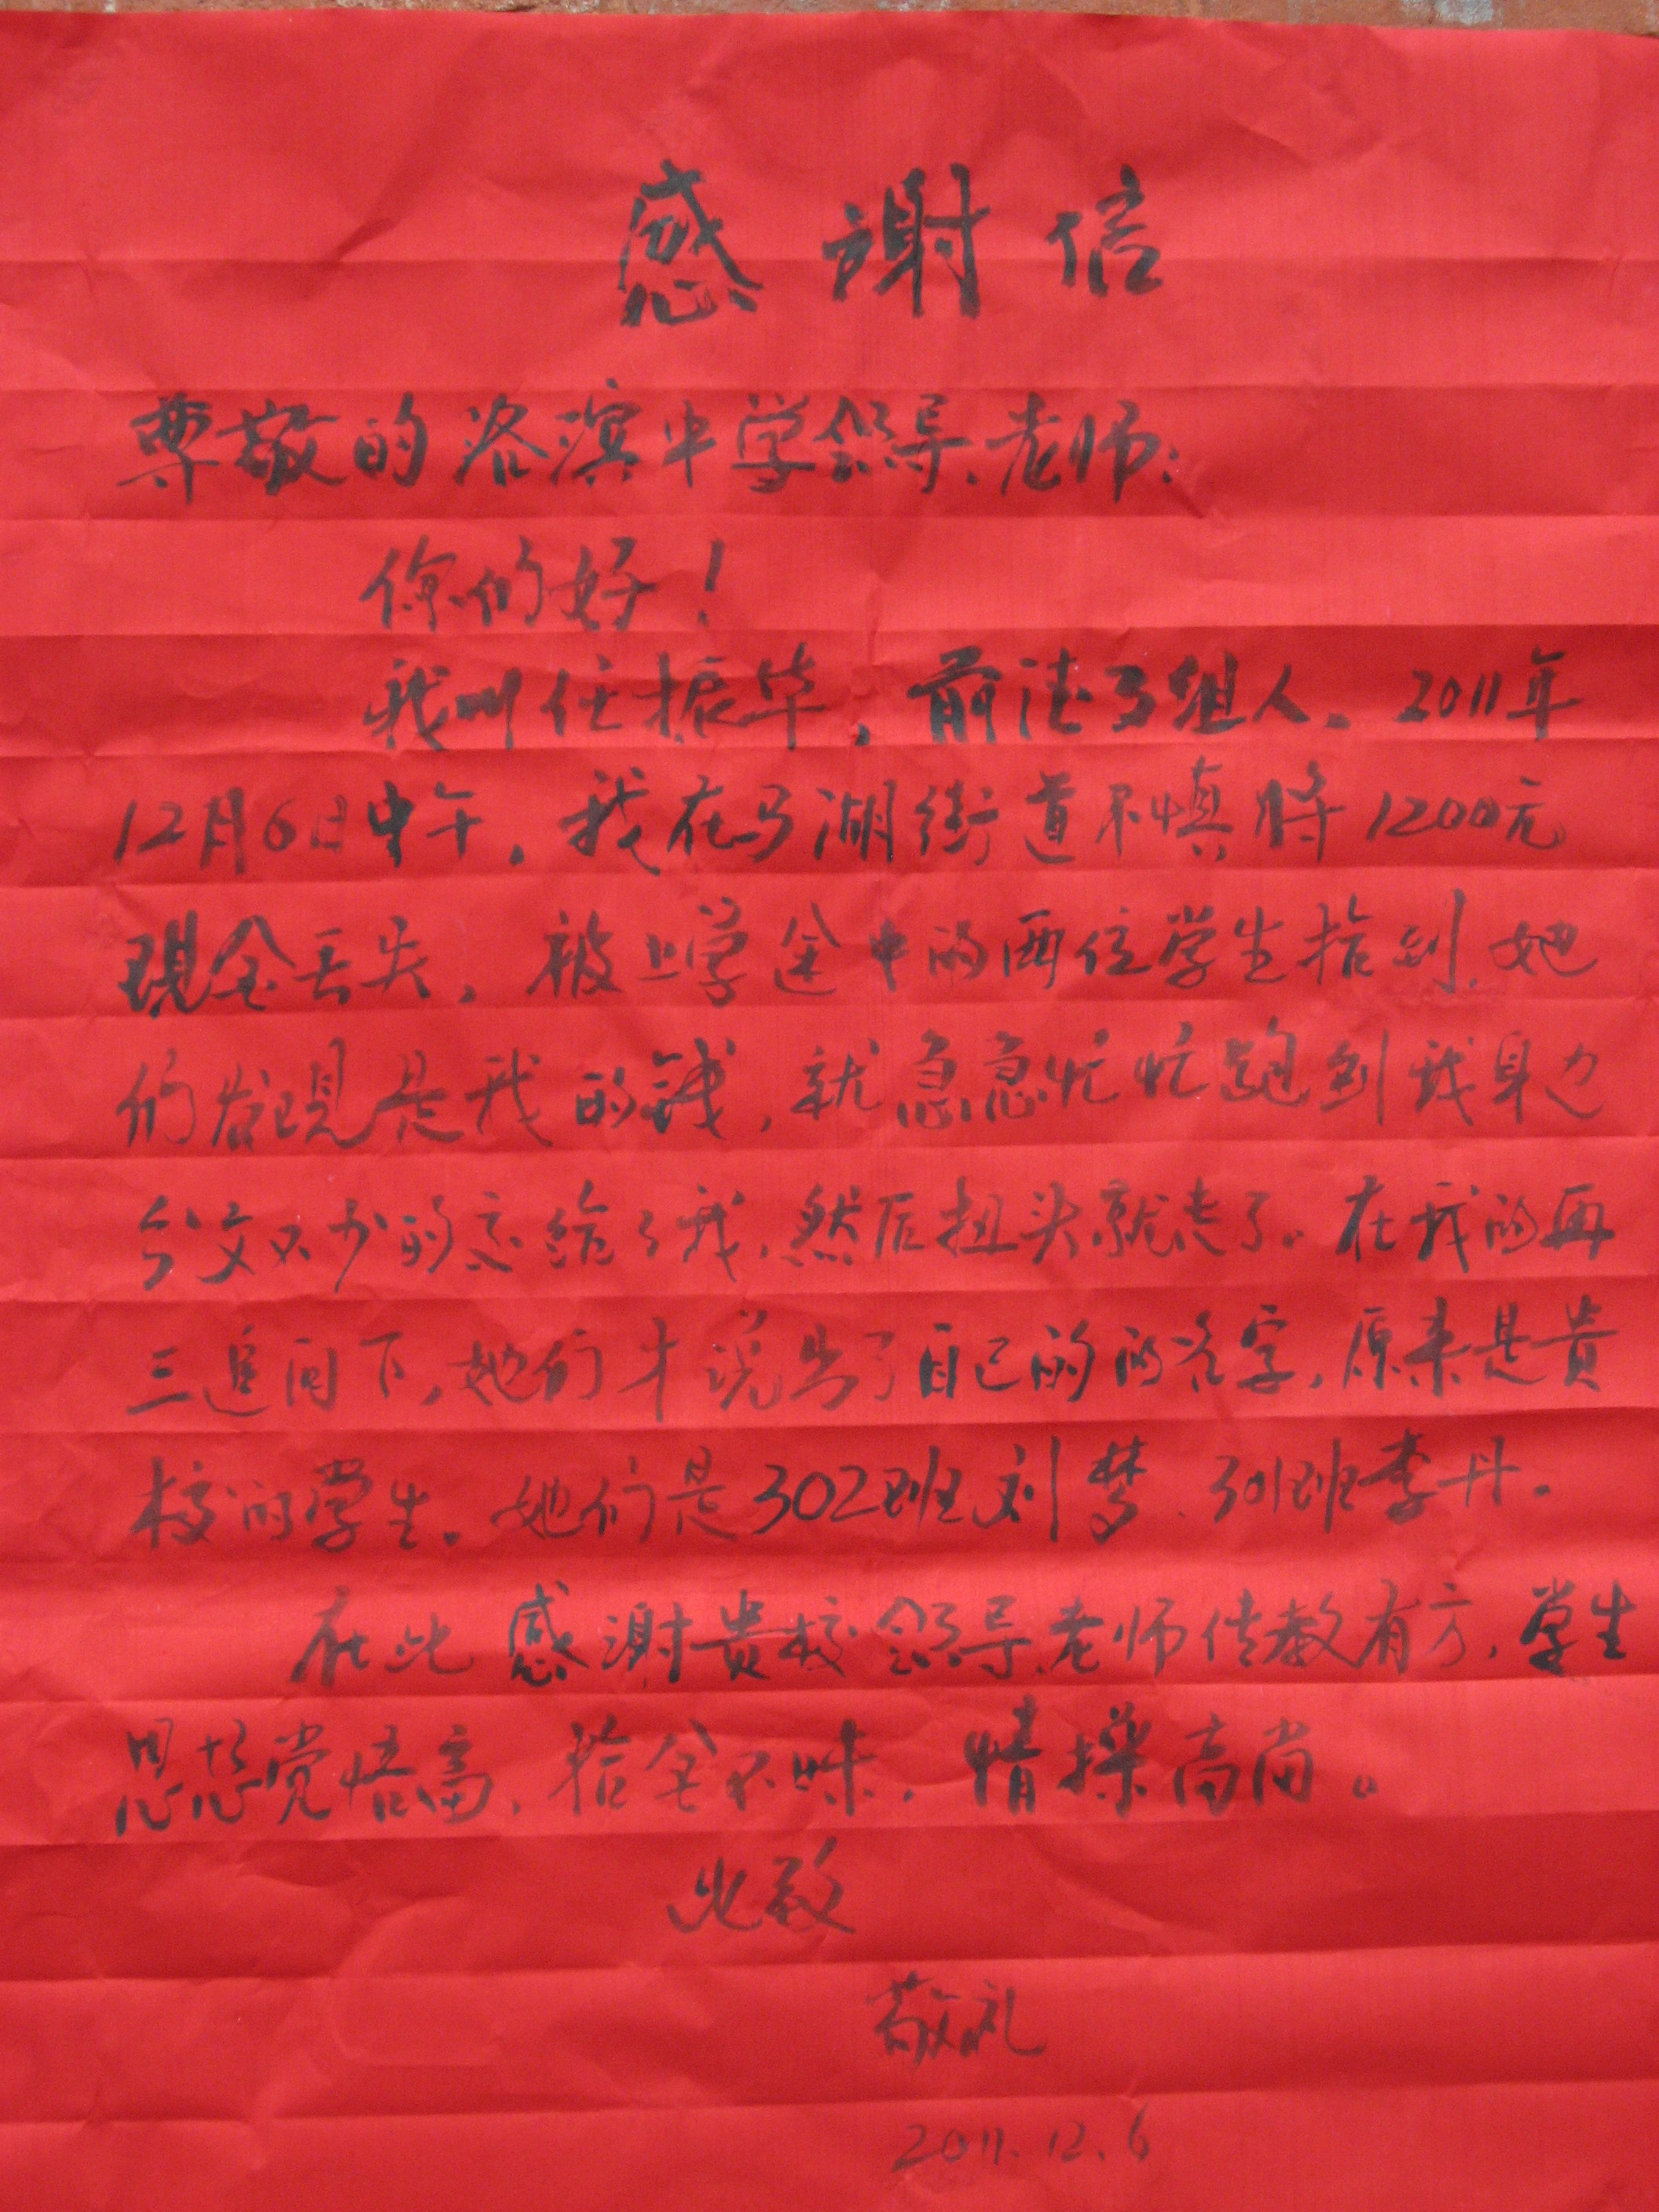 感谢信
尊敬的洛滨中学领导、老师:
你们好!
我叫任振华,前洼3组人。2011年
12月6日中午,我在马湖街道不慎将1200元
现金丢失,被上学途中的两位学生拾到,她
们发现是我的钱,就急急忙忙跑到我身边
分文不少的交给了我,然后扭头就走了。在我的再
三追问下,她们才说出了自己的的名字,原来是贵
校的学生。她们是302班刘梦、301班李丹。
在此感谢贵校领导、老师传教有方,学生
思想觉悟高,拾金不昧,情操高尚。
此致
敬礼
2011.12.6